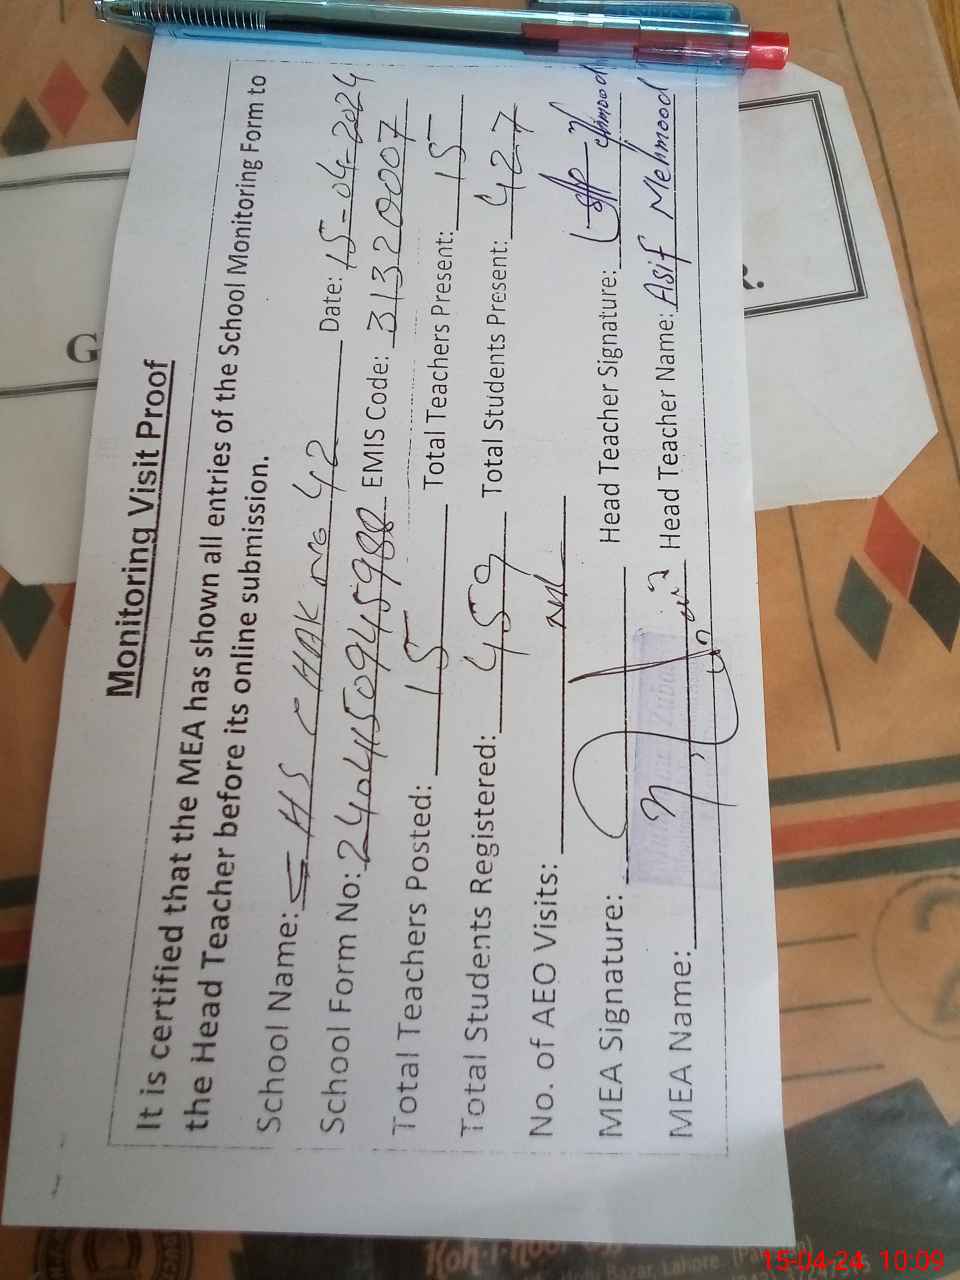 Monitoring Visit Proof
It is certified that the MEA has shown all entries of the School Monitoring Form to
the Head Teacher before its online submission.
School Name: GHS CHAK NO 42 Date: 15-04-2024
School Form No: EMIS Code: 31320007
Total Teachers Posted: 15 Total Teachers Present: 15
Total Students Registered: 459 Total Students Present: 427
No. of AEO Visits: Nil
MEA Signature: Head Teacher Signature:
MEA Name: Head Teacher Name: Asif Mehmood
G
Koh-i-Noor
Bazar, Lahore.
15-04-24 10:09